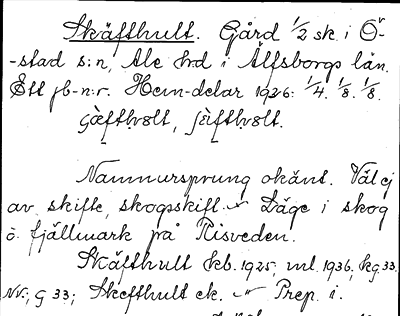 Skäfthult. Gård 1/2 sk. i Ö-
-stad s:n, Ale h:d i Älfsborgs län.
Ett jb-n:r. Hem-delar 1926: 1/4. 1/8. 1/8.
Namnursprung okänt. Väl ej
av skifte, skogsskift. Läge i skog
o. fjällmark på Risveden.
Skäfthult kb. 1925, ml. 1936, kg 33.
Nv; G 33; Skefthult ek. Prep. i.